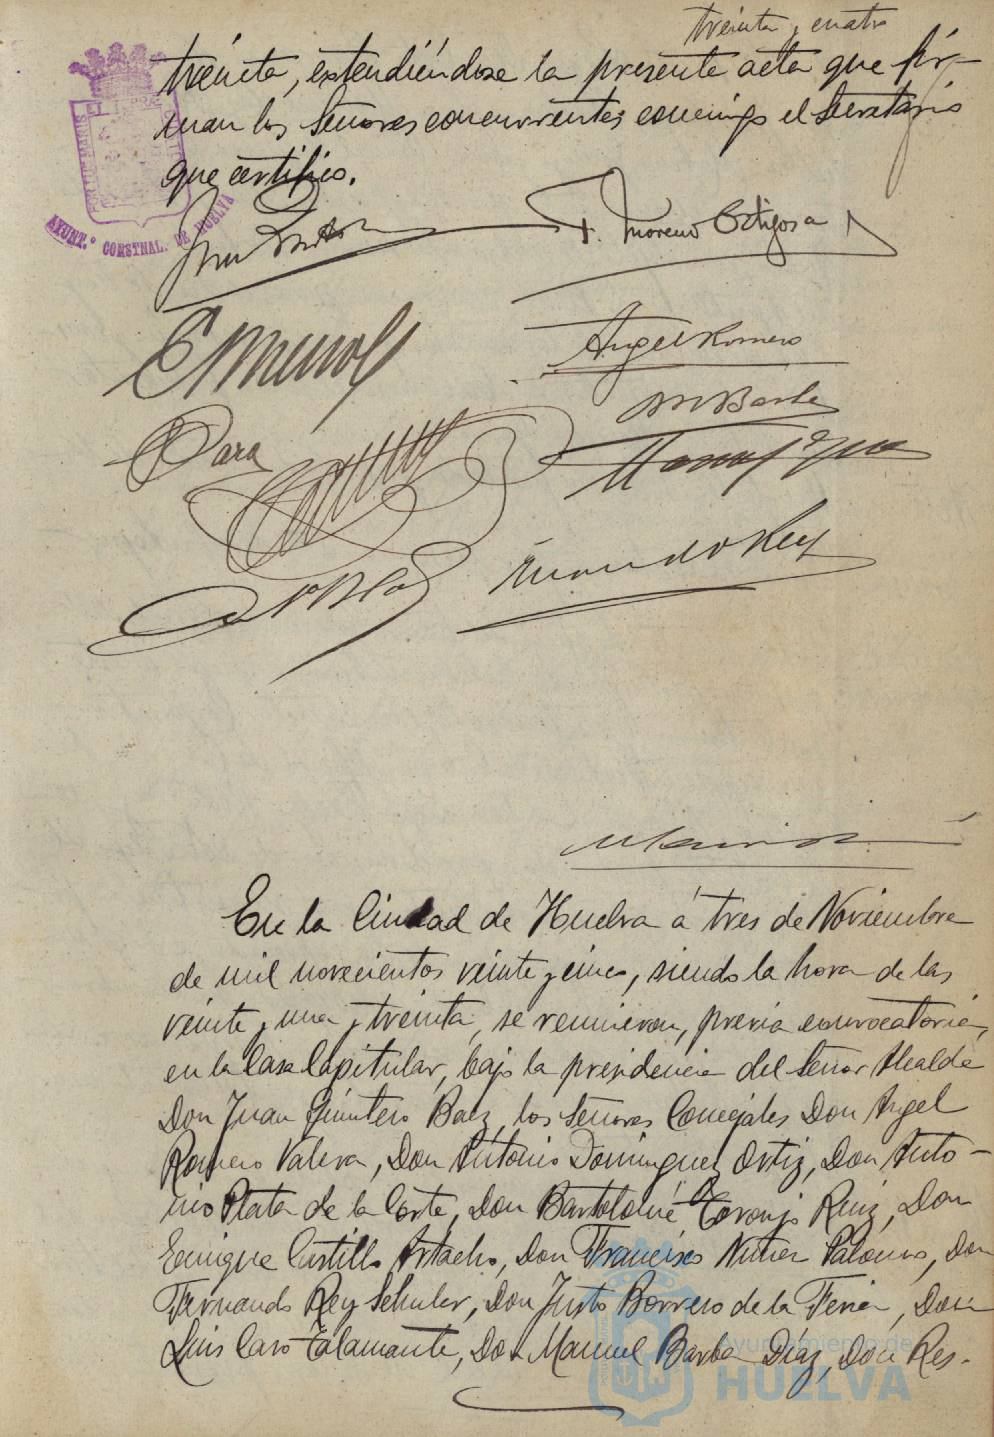 treinta y cuatro
treinta, extendiéndose la presente acta que fir-
man los Señores concurrentes conmigo el Secretario
que certifico.
AYUNT.º CONSTNAL. DE HUELVA
F. Moreno Ortigosa
Angel Romero
M Barba
Para
Fernando Rey
En la Ciudad de Huelva á tres de Noviembre
de mil novecientos veinte y cinco, siendo la hora de las
veinte y una y treinta, se reunieron, previa convocatoria,
en la Casa Capitular, bajo la presidencia del Señor Alcalde
Don Juan Quintero Baez, los Señores Concejales Don Angel
Romero Valera, Don Antonio Dominguez Ortiz, Don Anto-
nio Plata de la Corte, Don Bartolomé Toronjo Ruiz, Don
Enrique Castillo Artacho, Don Francisco Nuñez Palomo, Don
Fernando Rey Schuler, Don Justo Borrero de la Feria, Don
Luis Caro Talamante, Don Manuel Barba Díaz, Don Res-
Ayuntamiento de
HUELVA